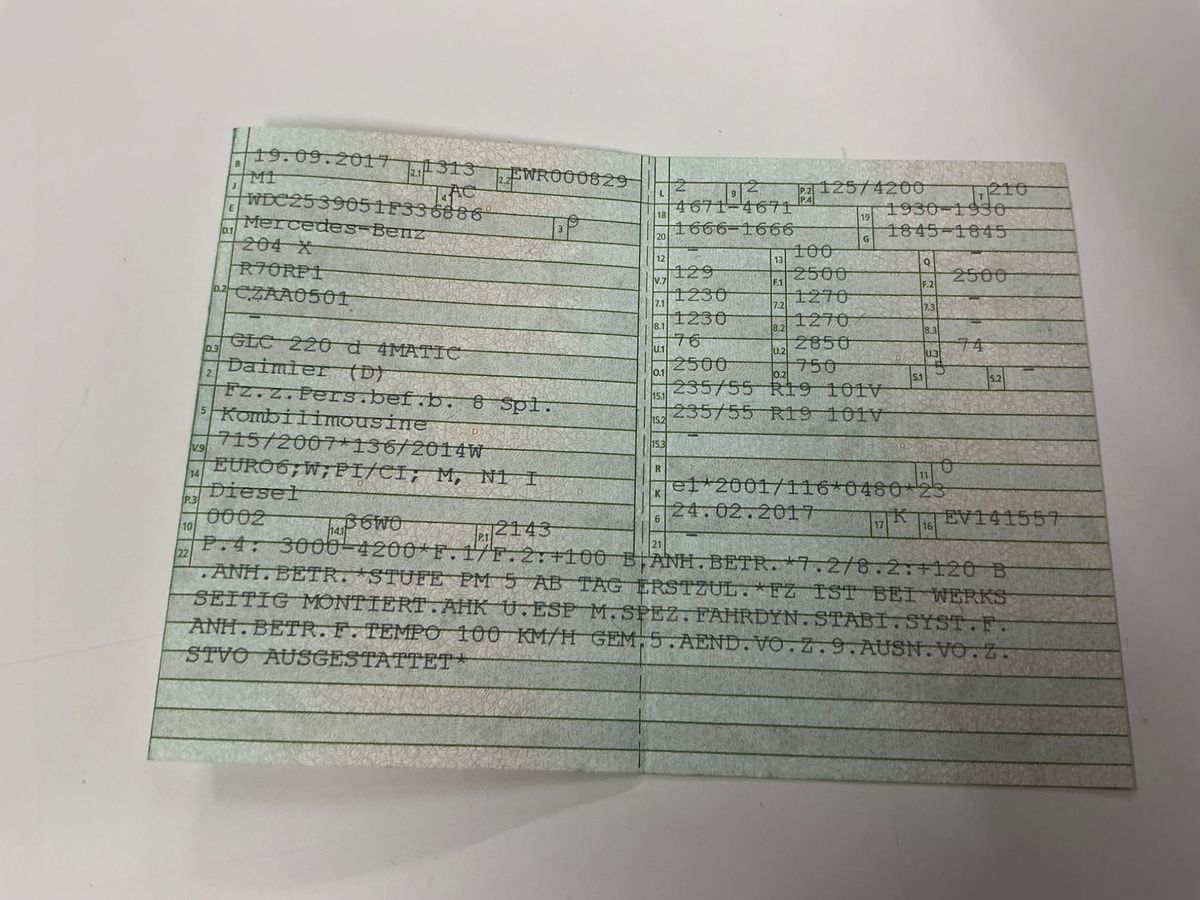 B 19.09.2017 2.1 1313 2.2 EWR000829
J M1 4 AC
E WDC2539051F336886 3 9
D.1 Mercedes-Benz
204 X
R70RP1
D.2 CZAA0501
-
D.3 GLC 220 d 4MATIC
2 Daimler (D)
Fz.z.Pers.bef.b. 8 Spl.
5 Kombilimousine
V.9 715/2007*136/2014W
14 EURO6;W;PI/CI; M, N1 I
P.3 Diesel
10 0002 14.1 36W0 P.1 2143
L 2 9 2 P.2 P.4 125/4200 T 210
18 4671-4671 19 1930-1930
20 1666-1666 G 1845-1845
12 - 13 100 Q -
V.7 129 F.1 2500 F.2 2500
7.1 1230 7.2 1270 7.3 -
8.1 1230 8.2 1270 8.3 -
U.1 76 U.2 2850 U.3 74
O.1 2500 O.2 750 S.1 5 S.2 -
15.1 235/55 R19 101V
15.2 235/55 R19 101V
15.3 -
R 11 0
K e1*2001/116*0480*23
6 24.02.2017 17 K 16 EV141557
21 -
22 P.4: 3000-4200*F.1/F.2:+100 B.ANH.BETR.*7.2/8.2:+120 B
.ANH.BETR.*STUFE PM 5 AB TAG ERSTZUL.*FZ IST BEI WERKS
SEITIG MONTIERT.AHK U.ESP M.SPEZ.FAHRDYN.STABI.SYST.F.
ANH.BETR.F.TEMPO 100 KM/H GEM.5.AEND.VO.Z.9.AUSN.VO.Z.
STVO AUSGESTATTET*